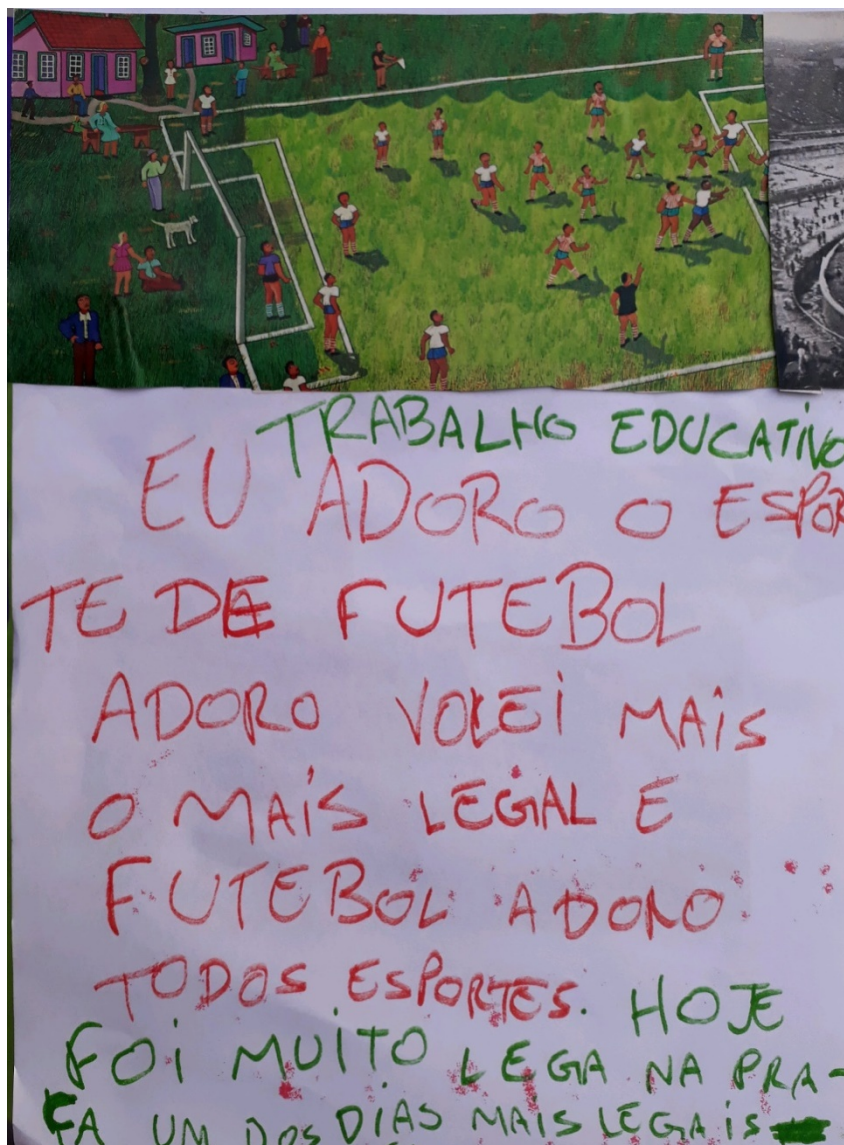 TRABALHO EDUCATIVO
EU ADORO O ESPOR
TE DE FUTEBOL
ADORO VOLEI MAIS
O MAIS LEGAL E
FUTEBOL ADORO
TODOS ESPORTES. HOJE
FOI MUITO LEGA NA PRA-
ÇA UM DOS DIAS MAIS LEGAIS